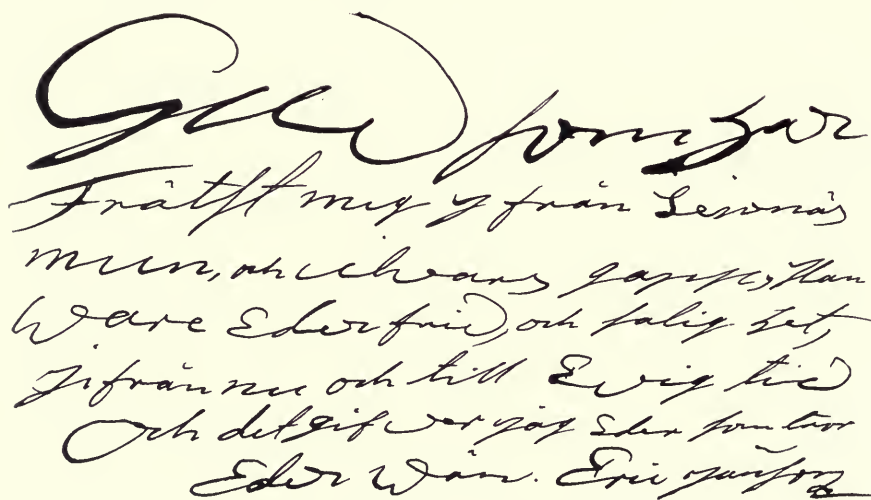 Gud som har
Frälst mig ifrån Leionäs
mun, och ulvars gapp, Han
Ware Eder frid, och salig het,
ifrån nu och till Ewig tid
Och det gifwer jag Eder som tror
Eder Wän. Eric Jansson